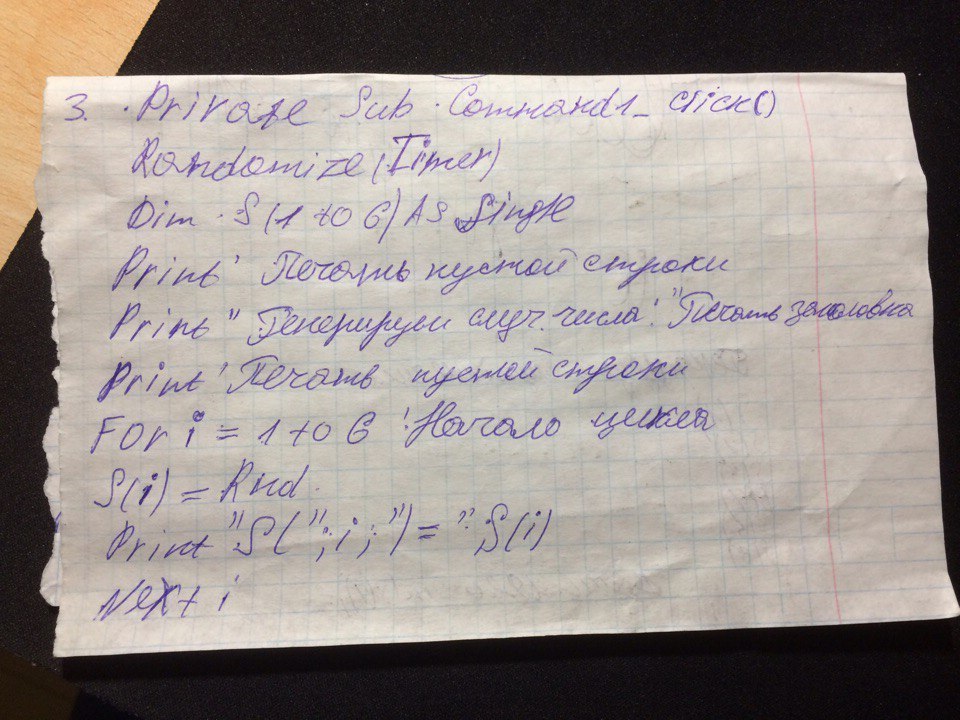 3. Private Sub Command1_Click()
Randomize(Timer)
Dim S(1 to 6) As Single
Print' Печать пустой строки
Print" Генерируем случ. числа:" Печать заголовка
Print' Печать пустой строки
For i = 1 to 6 'Начало цикла
S(i) = Rnd
Print "S(";i;")= ";S(i)
Next i